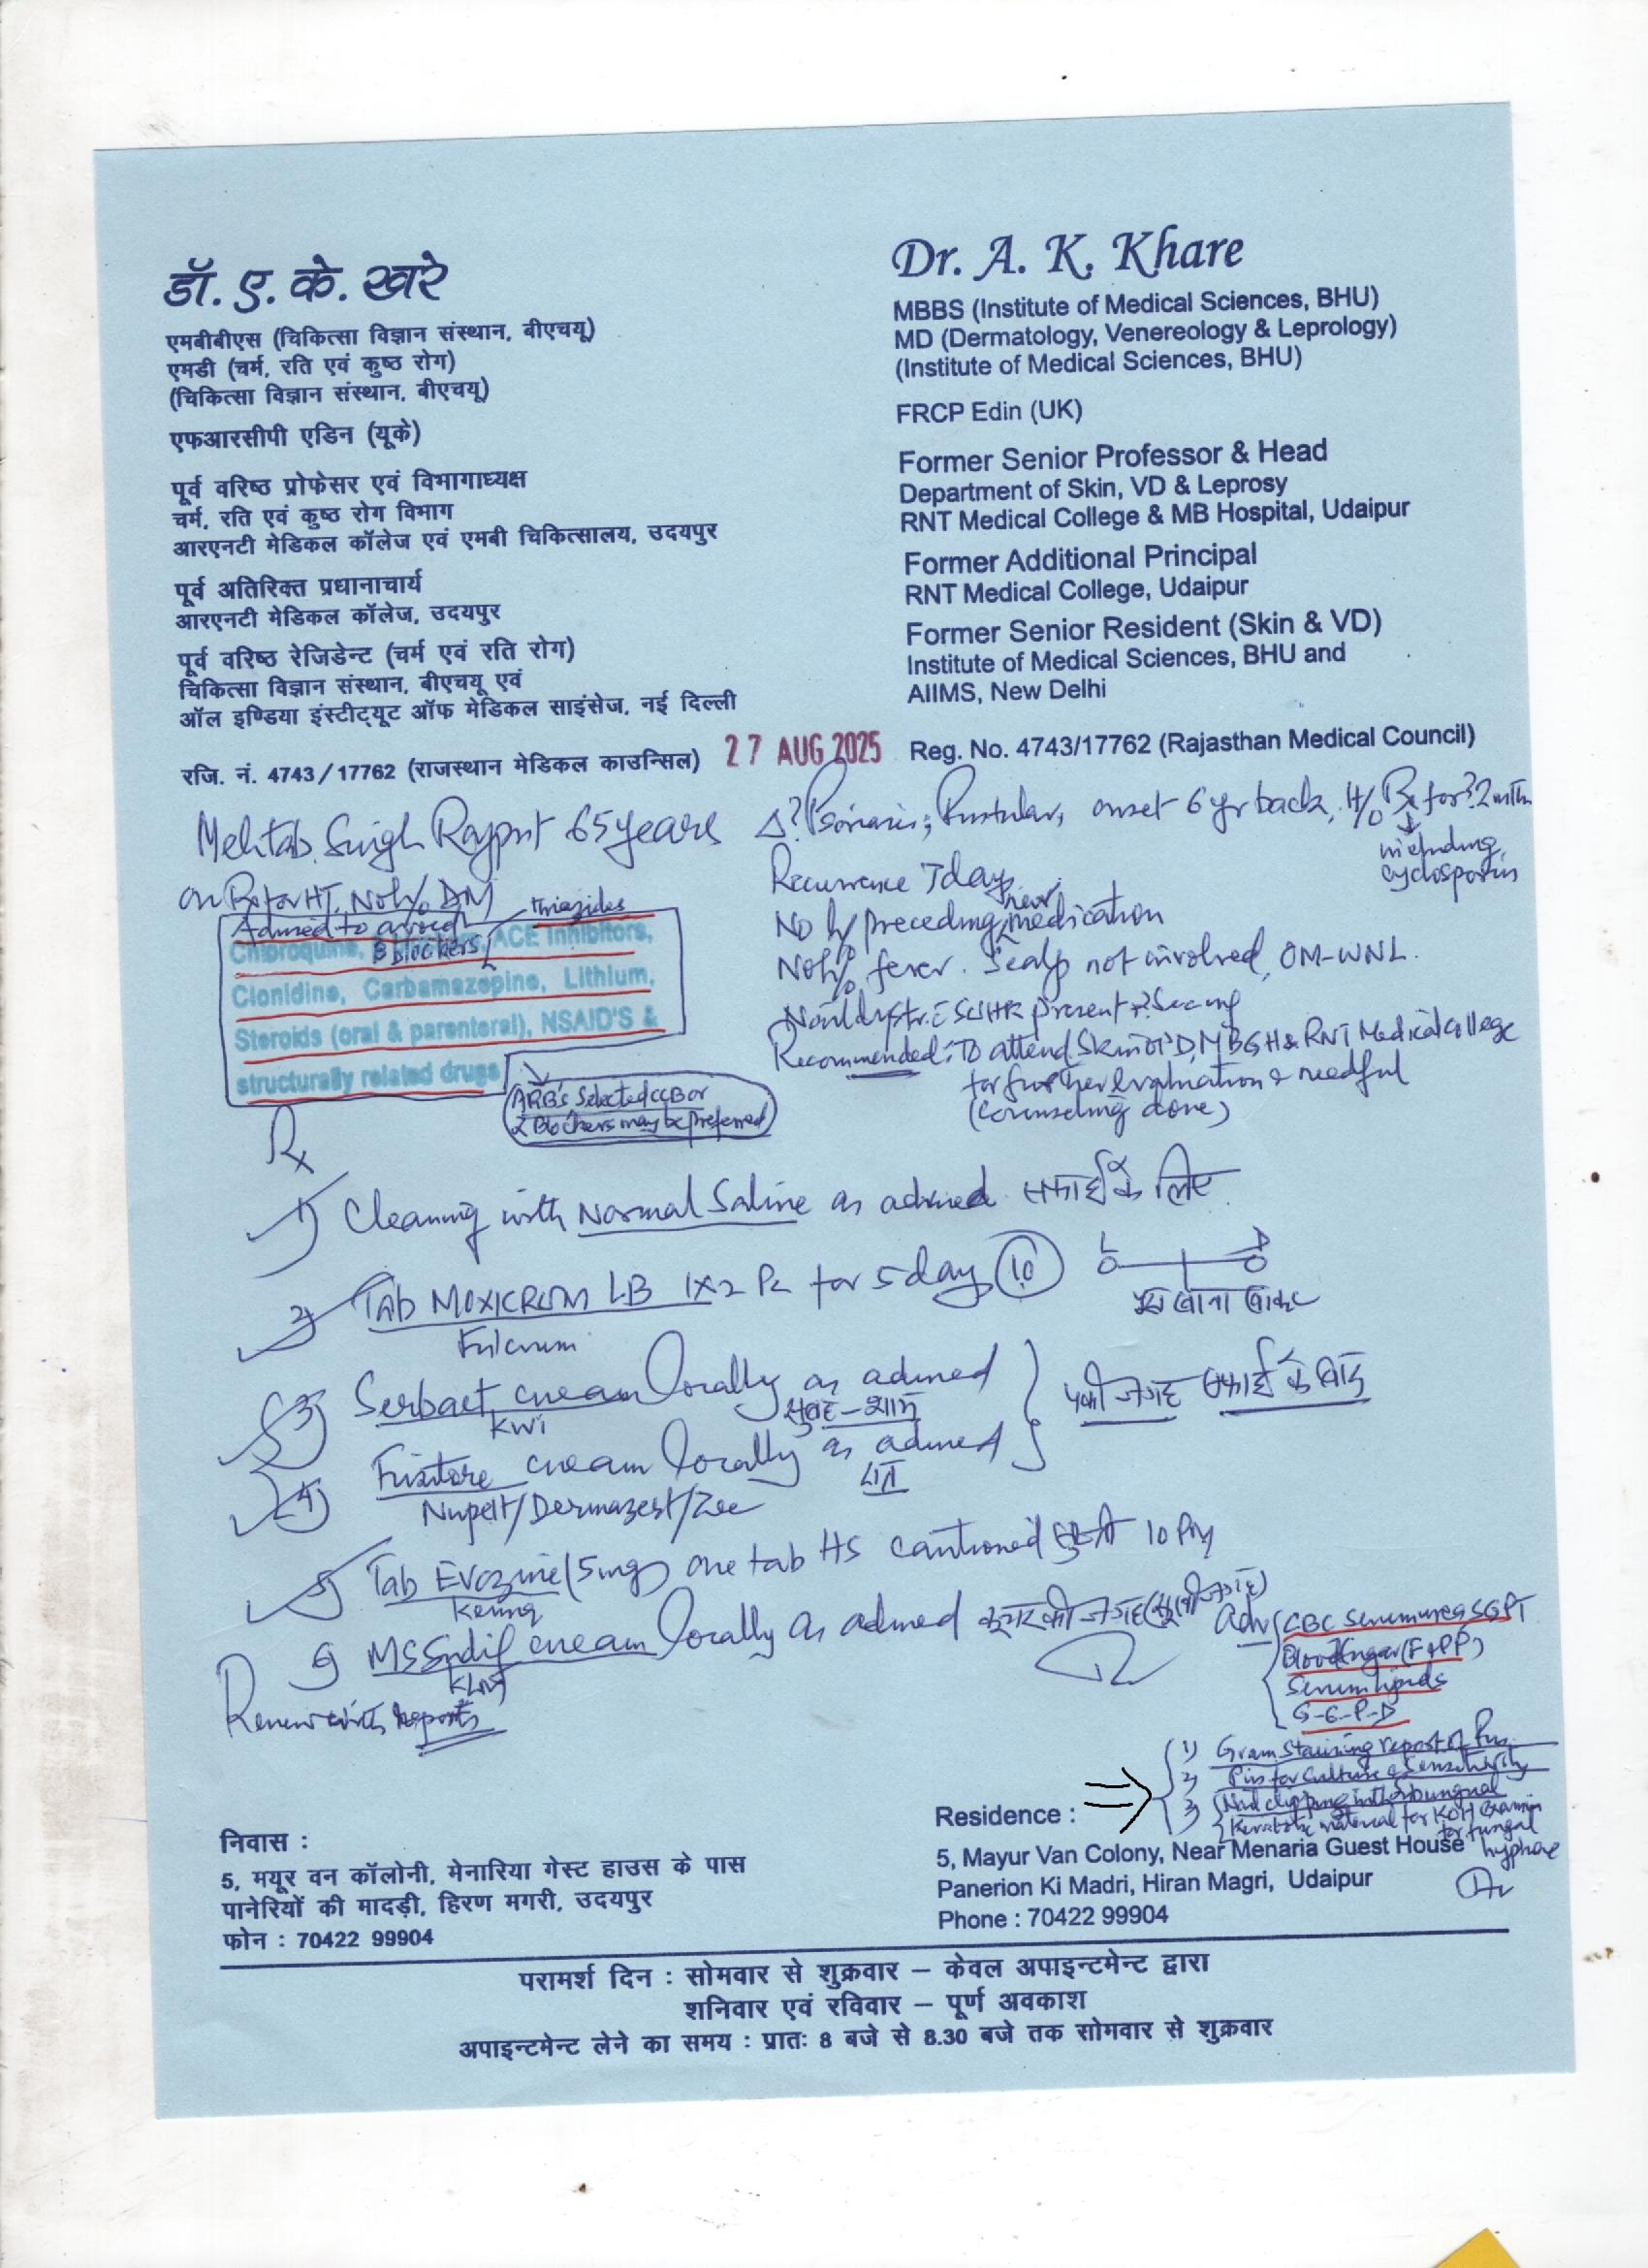 डॉ. ए. के. खरे
एमबीबीएस (चिकित्सा विज्ञान संस्थान, बीएचयू)
एमडी (चर्म, रति एवं कुष्ठ रोग)
(चिकित्सा विज्ञान संस्थान, बीएचयू)
एफआरसीपी एडिन (यूके)
पूर्व वरिष्ठ प्रोफेसर एवं विभागाध्यक्ष
चर्म, रति एवं कुष्ठ रोग विभाग
आरएनटी मेडिकल कॉलेज एवं एमबी चिकित्सालय, उदयपुर
पूर्व अतिरिक्त प्रधानाचार्य
आरएनटी मेडिकल कॉलेज, उदयपुर
पूर्व वरिष्ठ रेजिडेन्ट (चर्म एवं रति रोग)
चिकित्सा विज्ञान संस्थान, बीएचयू एवं
ऑल इण्डिया इंस्टीट्यूट ऑफ मेडिकल साइंसेज, नई दिल्ली
रजि. नं. 4743/17762 (राजस्थान मेडिकल काउन्सिल)
Dr. A. K. Khare
MBBS (Institute of Medical Sciences, BHU)
MD (Dermatology, Venereology & Leprology)
(Institute of Medical Sciences, BHU)
FRCP Edin (UK)
Former Senior Professor & Head
Department of Skin, VD & Leprosy
RNT Medical College & MB Hospital, Udaipur
Former Additional Principal
RNT Medical College, Udaipur
Former Senior Resident (Skin & VD)
Institute of Medical Sciences, BHU and
AIIMS, New Delhi
27 AUG 2025
Reg. No. 4743/17762 (Rajasthan Medical Council)
Mehtab Singh Rajput 65 years
on Rx for HT, No h/o DM
Advised to avoid thiazides
Chloroquine, B blockers, ACE Inhibitors,
Clonidine, Carbamazepine, Lithium,
Steroids (oral & parenteral), NSAID'S &
structurally related drugs
ARB's Selected CCB or
α Blockers may be preferred
Δ? Psoriasis; Pustular, onset 6 yr back, H/o Rx for ? 2 mths
including
cyclosporin
Recurrence 7 days
No h/o preceding new medication
No h/o fever. Scalp not involved, OM-WNL.
Nail dystr. c SUHK present
Recommended: To attend Skin OPD, MBGH & RNT Medical College
for further evaluation & needful
(counseling done)
Rx
1) Cleaning with Normal Saline as advised सफाई के लिए
2) Tab MOXICRUM LB 1x2 Pc for 5 days (10)
Fulcrum
खाना खाकर
3) Serbact cream locally as advised
KWI
सुबह-शाम
पकी जगह सफाई के बाद
4) cream locally as advised
रात
/Dermazest/Zee
5) Tab Evozine (5mg) one tab HS cautioned 10 PM
6) cream locally as advised
Review with reports
Adv CBC Serum urea SGPT
Blood Sugar (F & PP)
Serum lipids
G-6-P-D
1) Gram Staining report of Pus
2) Pus for Culture & Sensitivity
3) Nail clipping with Subungual
Keratotic material for KOH Examin
for fungal
hyphae
निवास :
5, मयूर वन कॉलोनी, मेनारिया गेस्ट हाउस के पास
पानेरियों की मादड़ी, हिरण मगरी, उदयपुर
फोन : 70422 99904
Residence :
5, Mayur Van Colony, Near Menaria Guest House
Panerion Ki Madri, Hiran Magri, Udaipur
Phone : 70422 99904
परामर्श दिन : सोमवार से शुक्रवार – केवल अपाइन्टमेन्ट द्वारा
शनिवार एवं रविवार – पूर्ण अवकाश
अपाइन्टमेन्ट लेने का समय : प्रातः 8 बजे से 8.30 बजे तक सोमवार से शुक्रवार